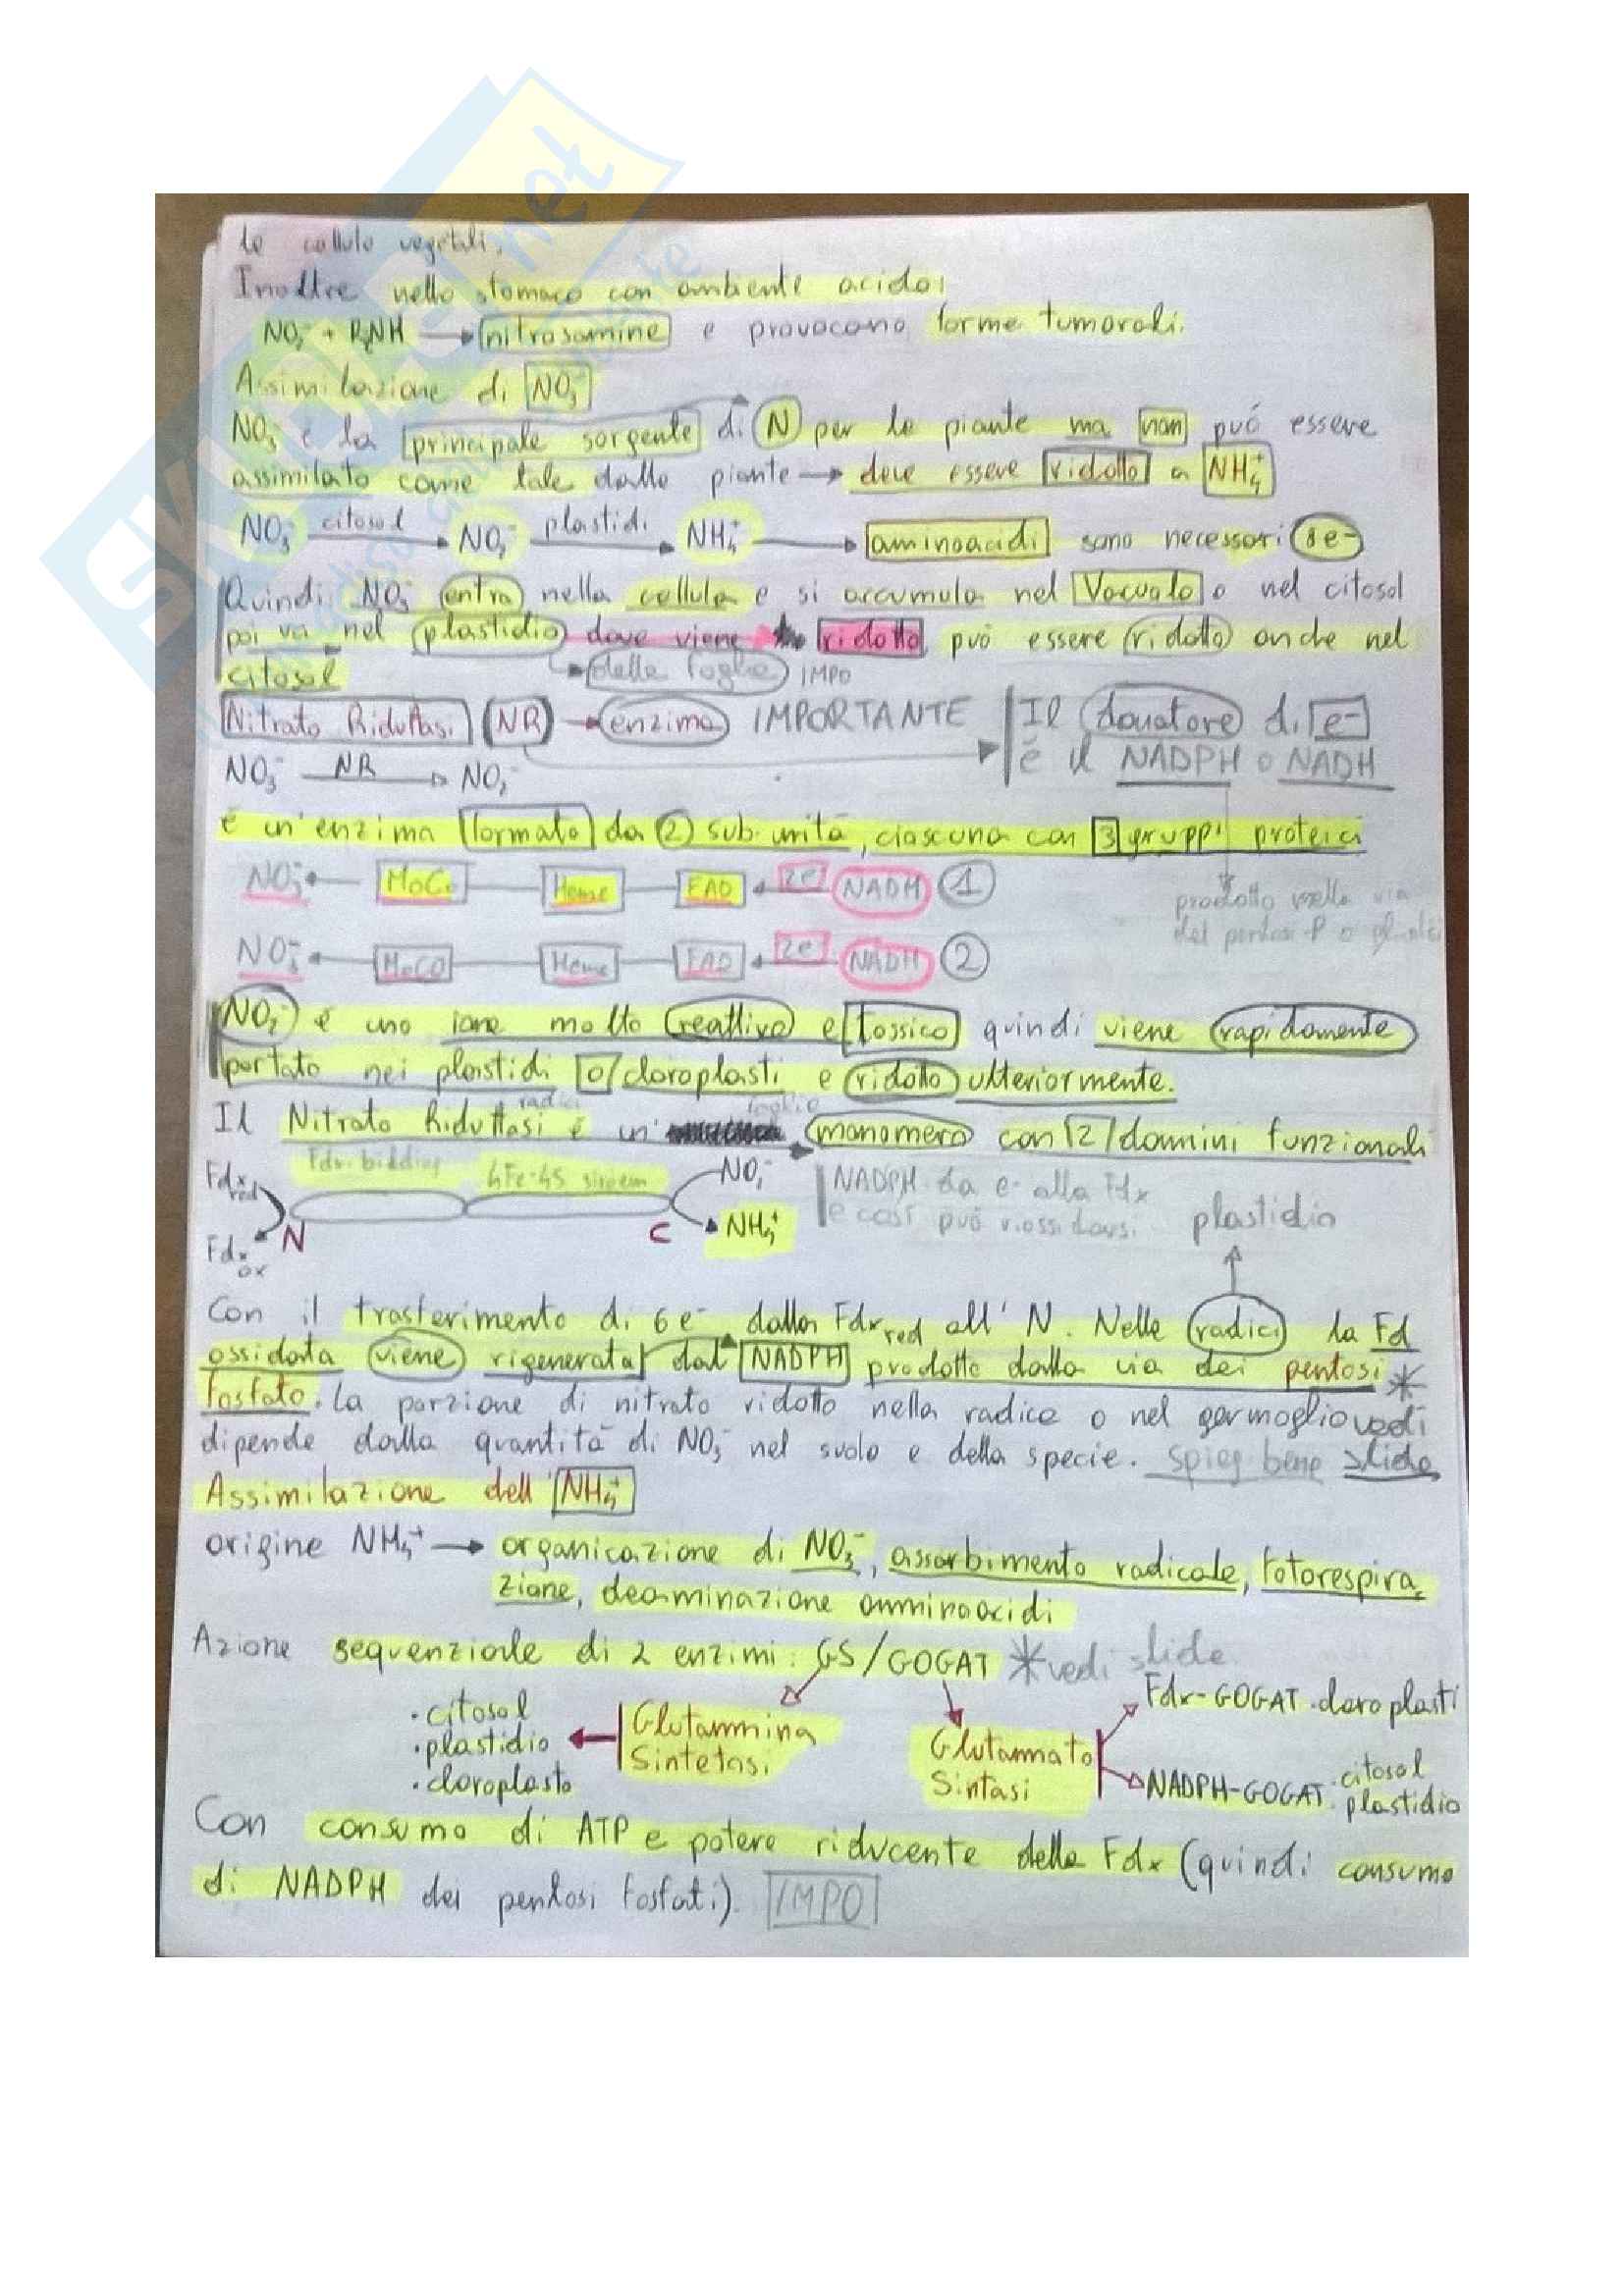 le cellule vegetali.
Inoltre nello stomaco con ambiente acido:
NO₂⁻ + R₂NH → nitrosamine e provocano forme tumorali.
Assimilazione di NO₃⁻
NO₃⁻ è la principale sorgente di N per le piante ma non può essere
assimilato come tale dalle piante → deve essere ridotto a NH₄⁺
NO₃⁻ citosol → NO₂⁻ plastidi → NH₄⁺ → aminoacidi sono necessari 8e-
Quindi NO₃⁻ entra nella cellula e si accumula nel Vacuolo o nel citosol
poi va nel plastidio dove viene ridotto, può essere ridotto anche nel
citosol → delle foglie IMPO
Nitrato Riduttasi (NR) → enzima IMPORTANTE
Il donatore di e-
è il NADPH o NADH
NO₃⁻ NR → NO₂⁻
è un'enzima formato da 2 sub.unità, ciascuna con 3 gruppi proteici
NO₃⁻ ← MoCo Heme FAD ← 2e⁻ NADH 1
prodotto nella via
dei pentosi-P o
NO₃⁻ ← MoCO Heme FAD ← 2e⁻ NADH 2
NO₂⁻ è uno ione molto reattivo e tossico quindi viene rapidamente
portato nei plastidi o/cloroplasti e ridotto ulteriormente.
radici foglie
Il Nitrato Riduttasi è un' monomero con 2 domini funzionali
Fdx red Fdx bidding 4Fe-4S siroem NO₂⁻
N C NH₄⁺
Fdx ox
NADPH da e- alla Fdx
e così può riossidarsi. plastidio
Con il trasferimento di 6e⁻ dalla Fdx red all'N. Nelle radici la Fd
ossidata viene rigenerata dal NADPH prodotto dalla via dei pentosi *
fosfato. La porzione di nitrato ridotto nella radice o nel germoglio vedi
dipende dalla quantità di NO₃⁻ nel suolo e della specie. spieg. bene slide
Assimilazione dell'NH₄⁺
origine NH₄⁺ → organicazione di NO₃⁻, assorbimento radicale, fotorespira
zione, deaminazione amminoacidi
Azione sequenziale di 2 enzimi: GS/GOGAT * vedi slide
· citosol
· plastidio
· cloroplasto
Glutammina
Sintetasi
Glutammato
Sintasi
Fdx-GOGAT · cloroplasti
NADPH-GOGAT · citosol
plastidio
Con consumo di ATP e potere riducente della Fdx (quindi consumo
di NADPH dei pentosi fosfati) IMPO
SKUOLA.net